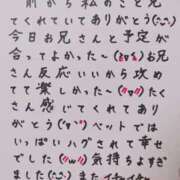 前から私のこと見
てくれていてありがとう(*´`*)
今日お兄さんと予定が
合ってよかった〜(≧▽≦)お兄
さん反応いいから攻めて
て楽しかった〜(≧▽≦)たく
さん感じてくれてありが
とう(°▽°)ベットでは
いっぱいハグされて幸せ
でした(≧w≦)気持ちよすぎ
ました(*´`*)また